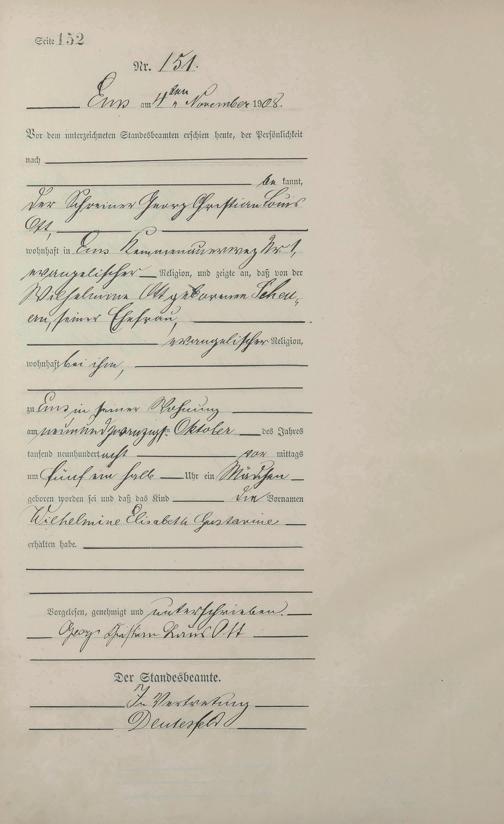 Seite 152
Nr. 151.
Ems am 4ten November 1908.
Vor dem unterzeichneten Standesbeamten erschien heute, der Persönlichkeit
nach
be kannt,
der Schreiner Georg Christian Louis
Ott,
wohnhaft in Ems Kemmenauerweg Nr 1,
evangelischer Religion, und zeigte an, daß von der
Wilhelmine Ott geborenen Scheu-
en, seiner Ehefrau,
evangelischer Religion,
wohnhaft bei ihm,
zu Ems, in seiner Wohnung
am neunundzwanzigsten Oktober des Jahres
tausend neunhundert acht vor mittags
um fünf ein halb Uhr ein Mädchen
geboren worden sei und daß das Kind die Vornamen
Wilhelmine Elisabeth Gustavine
erhalten habe.
Vorgelesen, genehmigt und unterschrieben.
Georg Christian Louis Ott
Der Standesbeamte.
In Vertretung